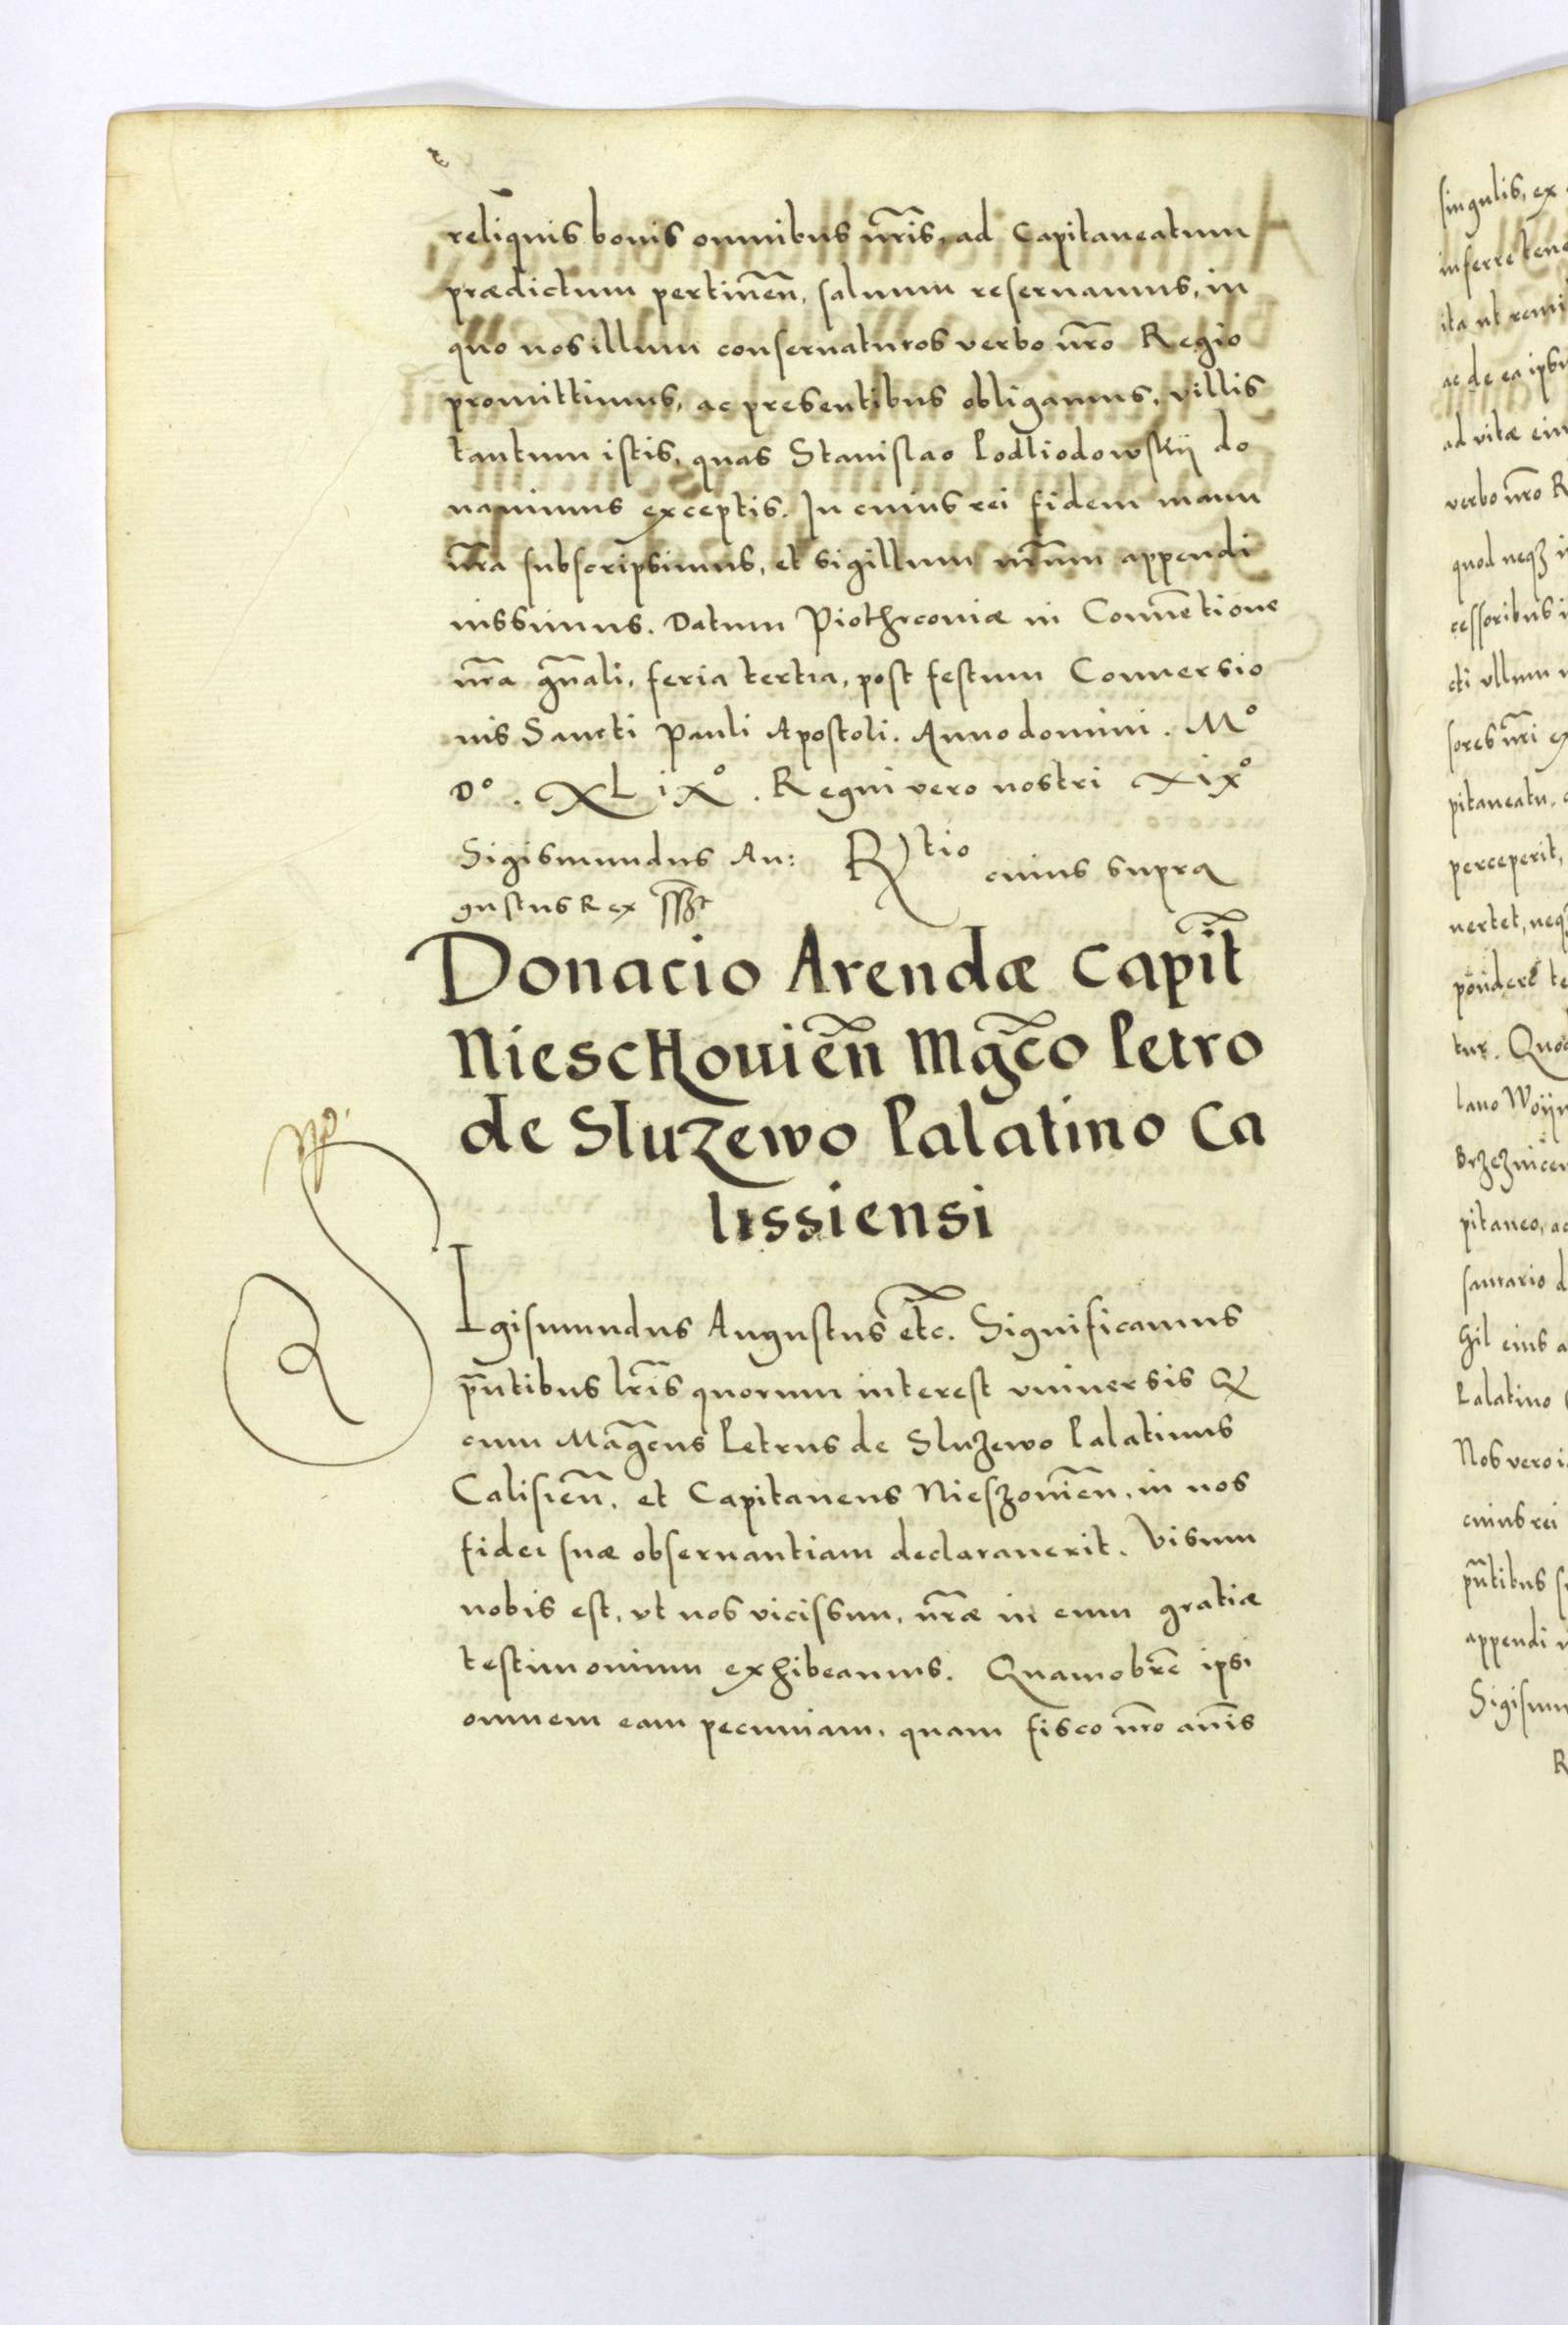 reliquis bonis omnibus nr̃is, ad Capitaneatum
prædictum pertineñ, saluum reseruamus, in
quo nos illum conseruaturos verbo nr̃o Regio
promittimus, ac presentibus obligamus, villis
tantum istis, quas Stanislao Podliodowskÿ do
nauimus exceptis. In cuius rei fidem manu
nr̃a subscripsimus, et sigillum nr̃um appendi
iussimus. Datum Piothrconiæ in Conuẽtione
nr̃a gñali, feria tertia, post festum Conuersio
nis Sancti Pauli Apostoli. Anno domini. Mº
Dº. XLiXº. Regni vero nostri Xixº
Sigismundus Au: Rtio cuius supra
gustus Rex sszt
Donacio Arendæ Capit̃
Nieschouieñ Mgc̃o Petro
de Sluzewo Palatino Ca
lissiensi
SIgismundus Augustus etc̃. Significamus
pñtibus lr̃is quorum interest vniuersis Q
cum Magc̃us Petrus de Sluzewo Palatinus
Calisieñ, et Capitaneus Nieszouieñ, in nos
fidei suæ obseruantiam declarauerit. Visum
nobis est, vt nos vicissim, nr̃æ in eum gratiæ
testimonium exhibeamus. Quamobrẽ ipsi
omnem eam pecuniam, quam fisco nr̃o añis
singulis, ex
inferre tene
ad vitæ eiu
verbo nr̃o R
cessoribus i
sores nr̃i ex
pitaneatu,
perceperit,
tur. Quod
pitaneo, ac
Palatino
Nos vero i
cuius rei
pñtibus
Sigismu
R